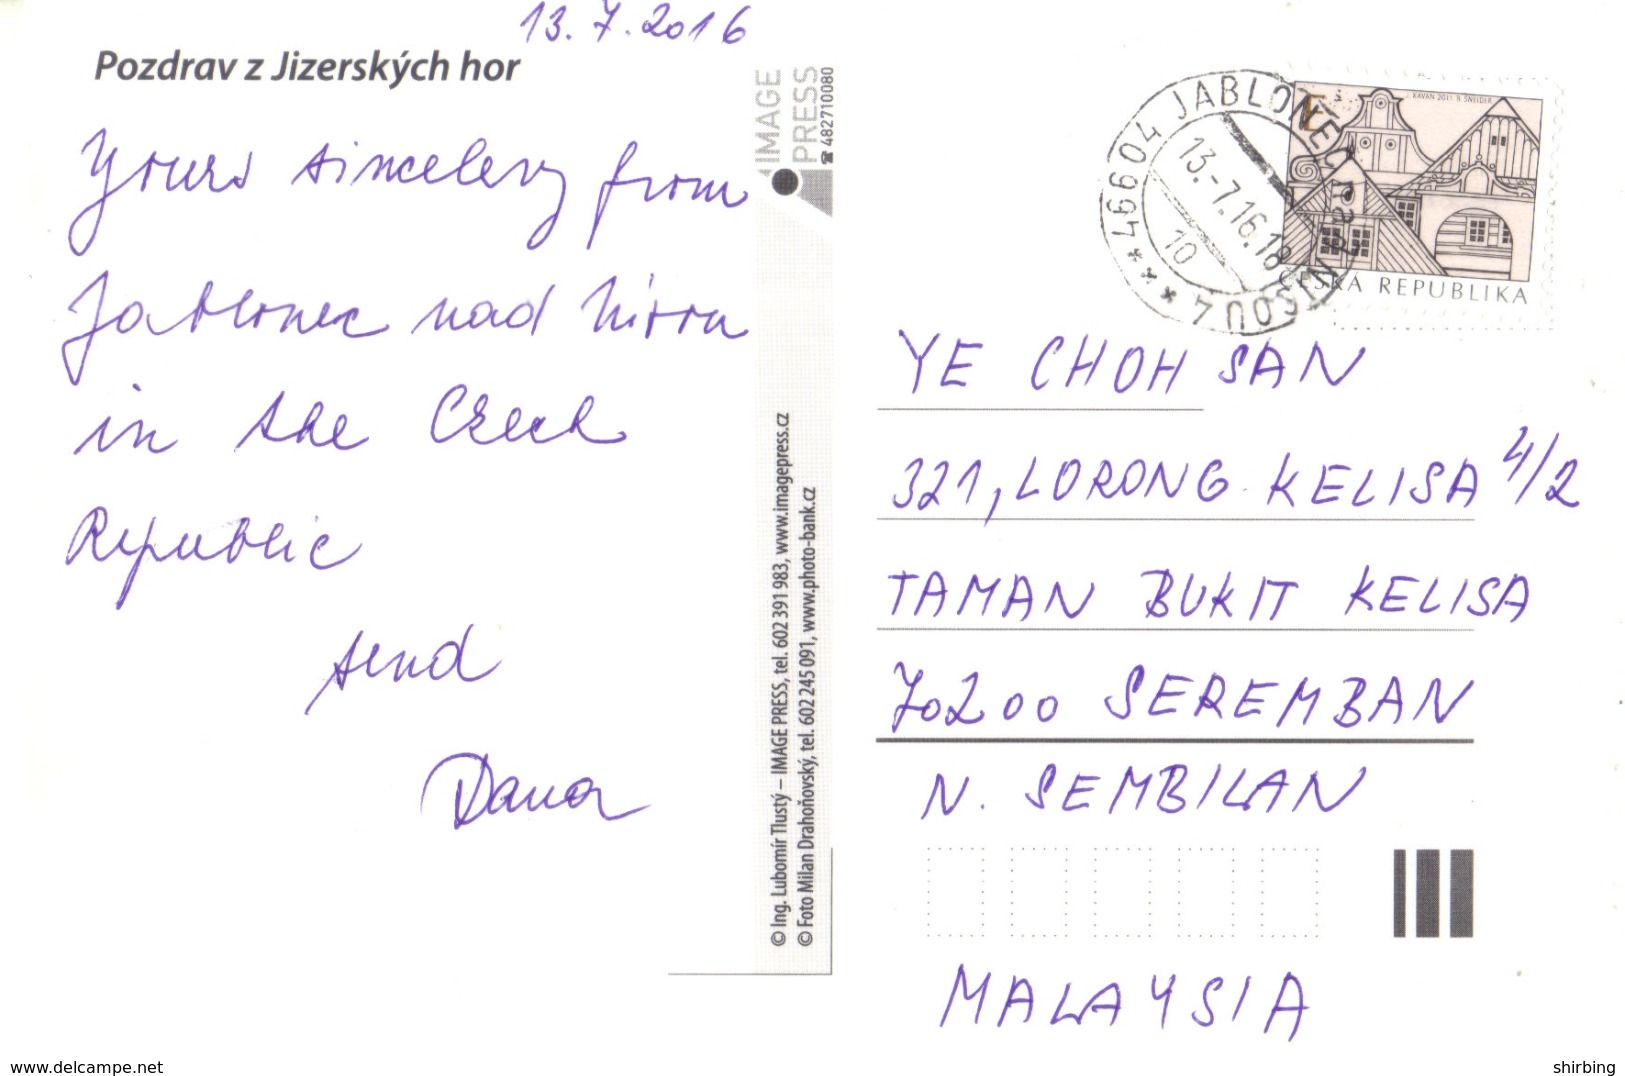 13. 7. 2016
Pozdrav z Jizerských hor
Yours sincelery from
Jablonec nad Nisou
in the Czech
Republic
send
Dana
IMAGE
PRESS
☎ 482710080
© Ing. Lubomír Tlustý – IMAGE PRESS, tel. 602 391 983, www.imagepress.cz
© Foto Milan Drahoňovský, tel. 602 245 091, www.photo-bank.cz
466 04 JABLONEC nad NISOU 4
13.-7.16.18
10
E
J. KAVAN 2011 B. ŠNEIDER
ČESKÁ REPUBLIKA
YE CHOH SAN
321, LORONG KELISA 4/2
TAMAN BUKIT KELISA
70200 SEREMBAN
N. SEMBILAN
MALAYSIA
www.delcampe.net
shirbing